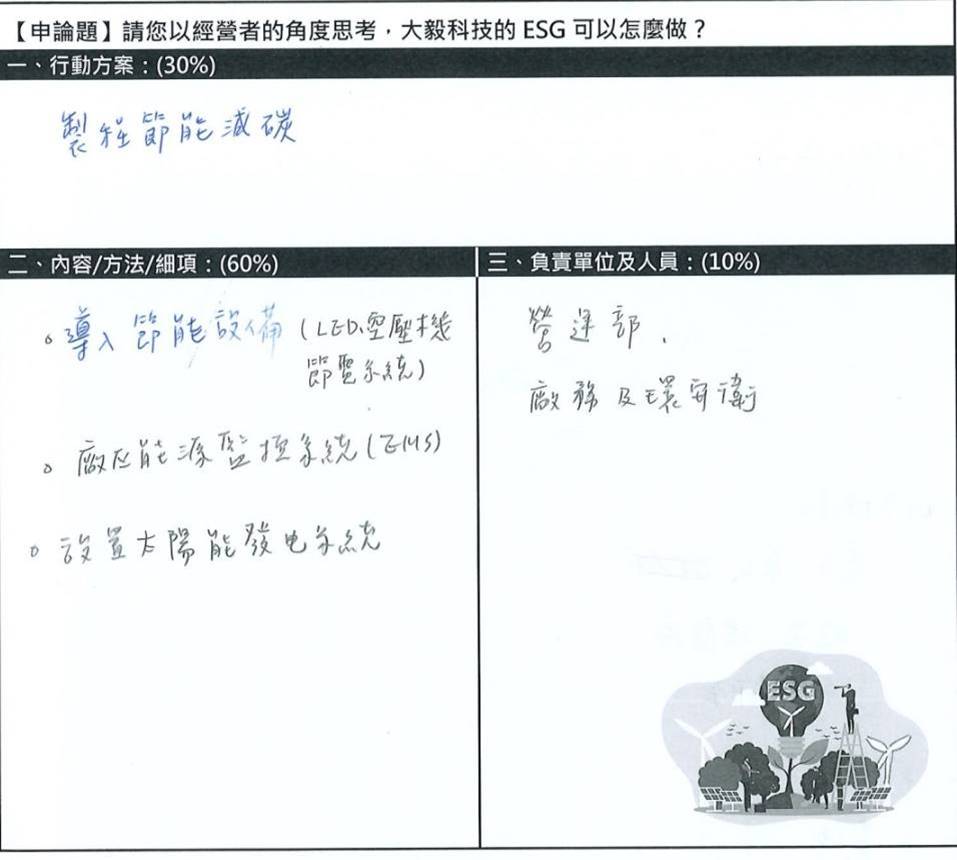 【申論題】請您以經營者的角度思考，大毅科技的 ESG 可以怎麼做？
一、行動方案：(30%)
製程節能減碳
二、內容/方法/細項：(60%)
。導入節能設備(LED、空壓機
節電系統)
。廠區能源監控系統(EMS)
。設置太陽能發电系統
三、負責單位及人員：(10%)
營運部、
廠務及環安衛
ESG